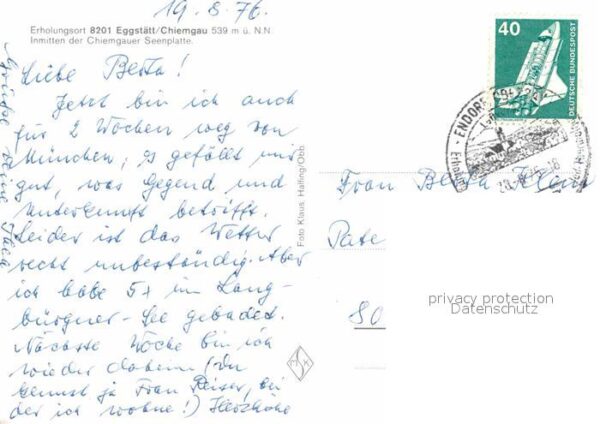 19.8.76
Erholungsort 8201 Eggstätt/Chiemgau 539 m ü. N.N.
Inmitten der Chiemgauer Seenplatte.
Liebe Berta!
Jetzt bin ich auch
für 2 Wochen weg von
München, es gefällt mir
gut, was Gegend und
Unterkunft betrifft.
Leider ist das Wetter
recht unbeständig. Aber
ich habe 5x im Lang-
bürgner-See gebadet.
Nächste Woche bin ich
wieder daheim (du
kennst ja Frau Reiser, bei
der ich wohne!) Herzliche
Grüße
Foto Klaus, Halfing/Obb.
40
DEUTSCHE BUNDESPOST
ENDORF
Frau Berta Klein
Pate
80
privacy protection
Datenschutz